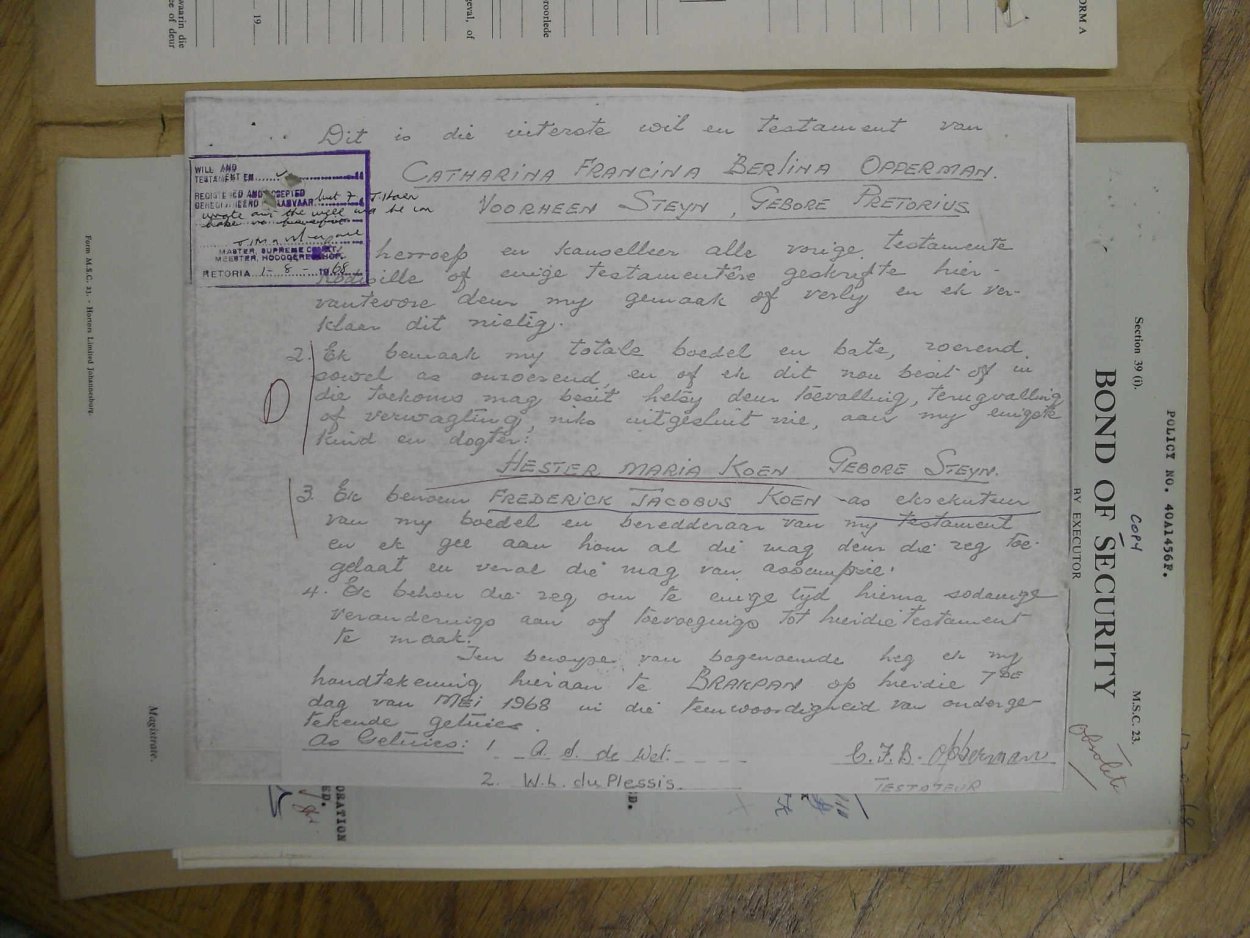 FORM A
waarin die
ce of deur
19
geval, of
oorlede
Dit is die uiterste wil en testament van
CATHARINA FRANCINA BERLINA OPPERMAN.
VOORHEEN STEYN, GEBORE PRETORIUS.
WILL AND
TESTAMENT EN
REGISTERED AND ACCEPTED but F. J. Koen
GEREGISTREER EN AANVAAR
wrote out the will and he
MASTER, SUPREME COURT
MEESTER, HOOGGEREGSHOF
PRETORIA 1-8-1968
herroep en kanselleer alle vorige testamente
Kodisille of enige testamentêre geskrifte hier-
vantevore deur my gemaak of verly en ek ver-
klaar dit nietig.
2. Ek bemaak my totale boedel en bate, roerend
sowel as onroerend, en of ek dit nou besit of in
die toekoms mag besit hetsy deur toevalling, terugvalling
of verwagting, niks uitgesluit nie, aan my enigste
kind en dogter:
HESTER MARIA KOEN GEBORE STEYN.
3. Ek benoem FREDERICK JACOBUS KOEN as eksekuteur
van my boedel en beredderaar van my testament
en ek gee aan hom al die mag deur die reg toe-
gelaat en veral die mag van assumpsie.
4. Ek behou die reg om te enige tyd hierna sodanige
veranderings aan of toevoegings tot hierdie testament
te maak.
Ten bewyse van bogenoemde heg ek my
handtekening hieraan te BRAKPAN op hierdie 7DE
dag van MEI 1968 in die teenwoordigheid van onderge-
tekende getuies.
As Getuies: 1. A. S. de Wet. C.F.B. Opperman
2. W.L. du Plessis. TESTATEUR
Form M.S.C. 23. - Hortors Limited Johannesburg
Magistrate.
POLICY NO. 40A1456F.
Section 39 (i).
COPY
M.S.C. 23.
BOND OF SECURITY
BY EXECUTOR
obsolete
ORATION